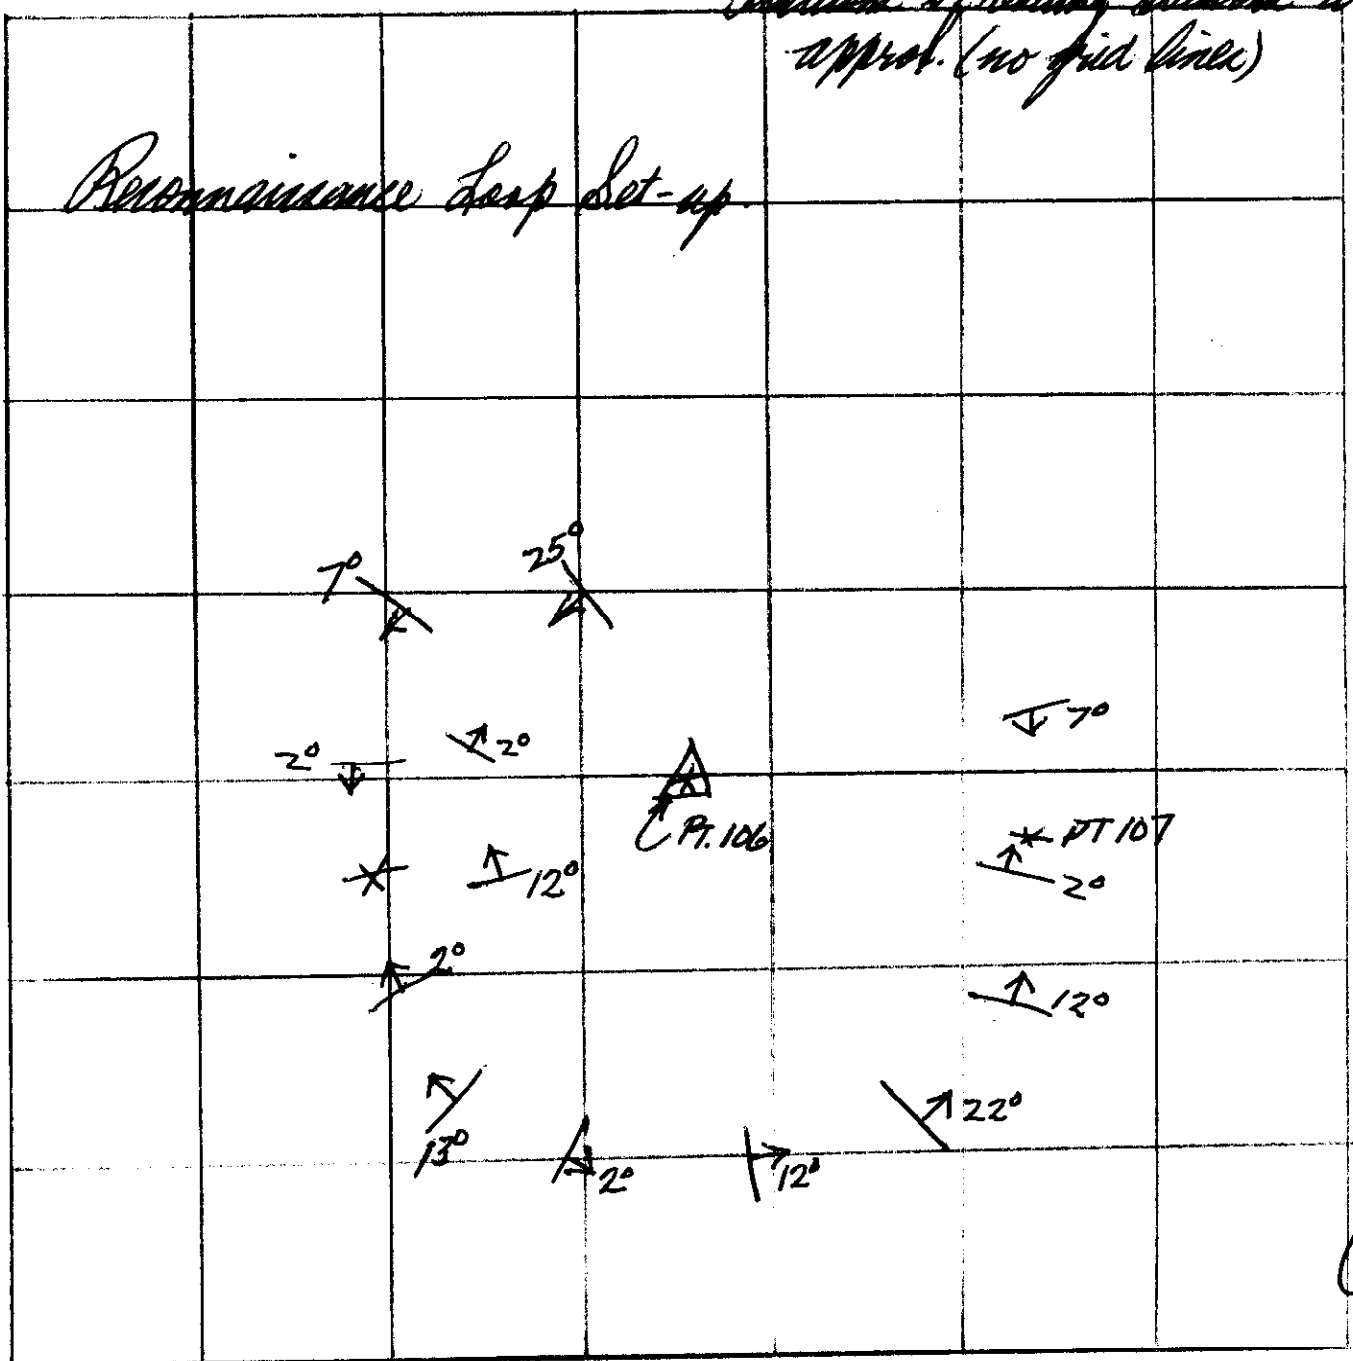 approx. (no grid lines)
Reconnaissance Loop Set-up.
7° 25°
2° 2° 7°
PT. 106 PT 107
12° 2°
2° 12°
13° 2° 12° 22°